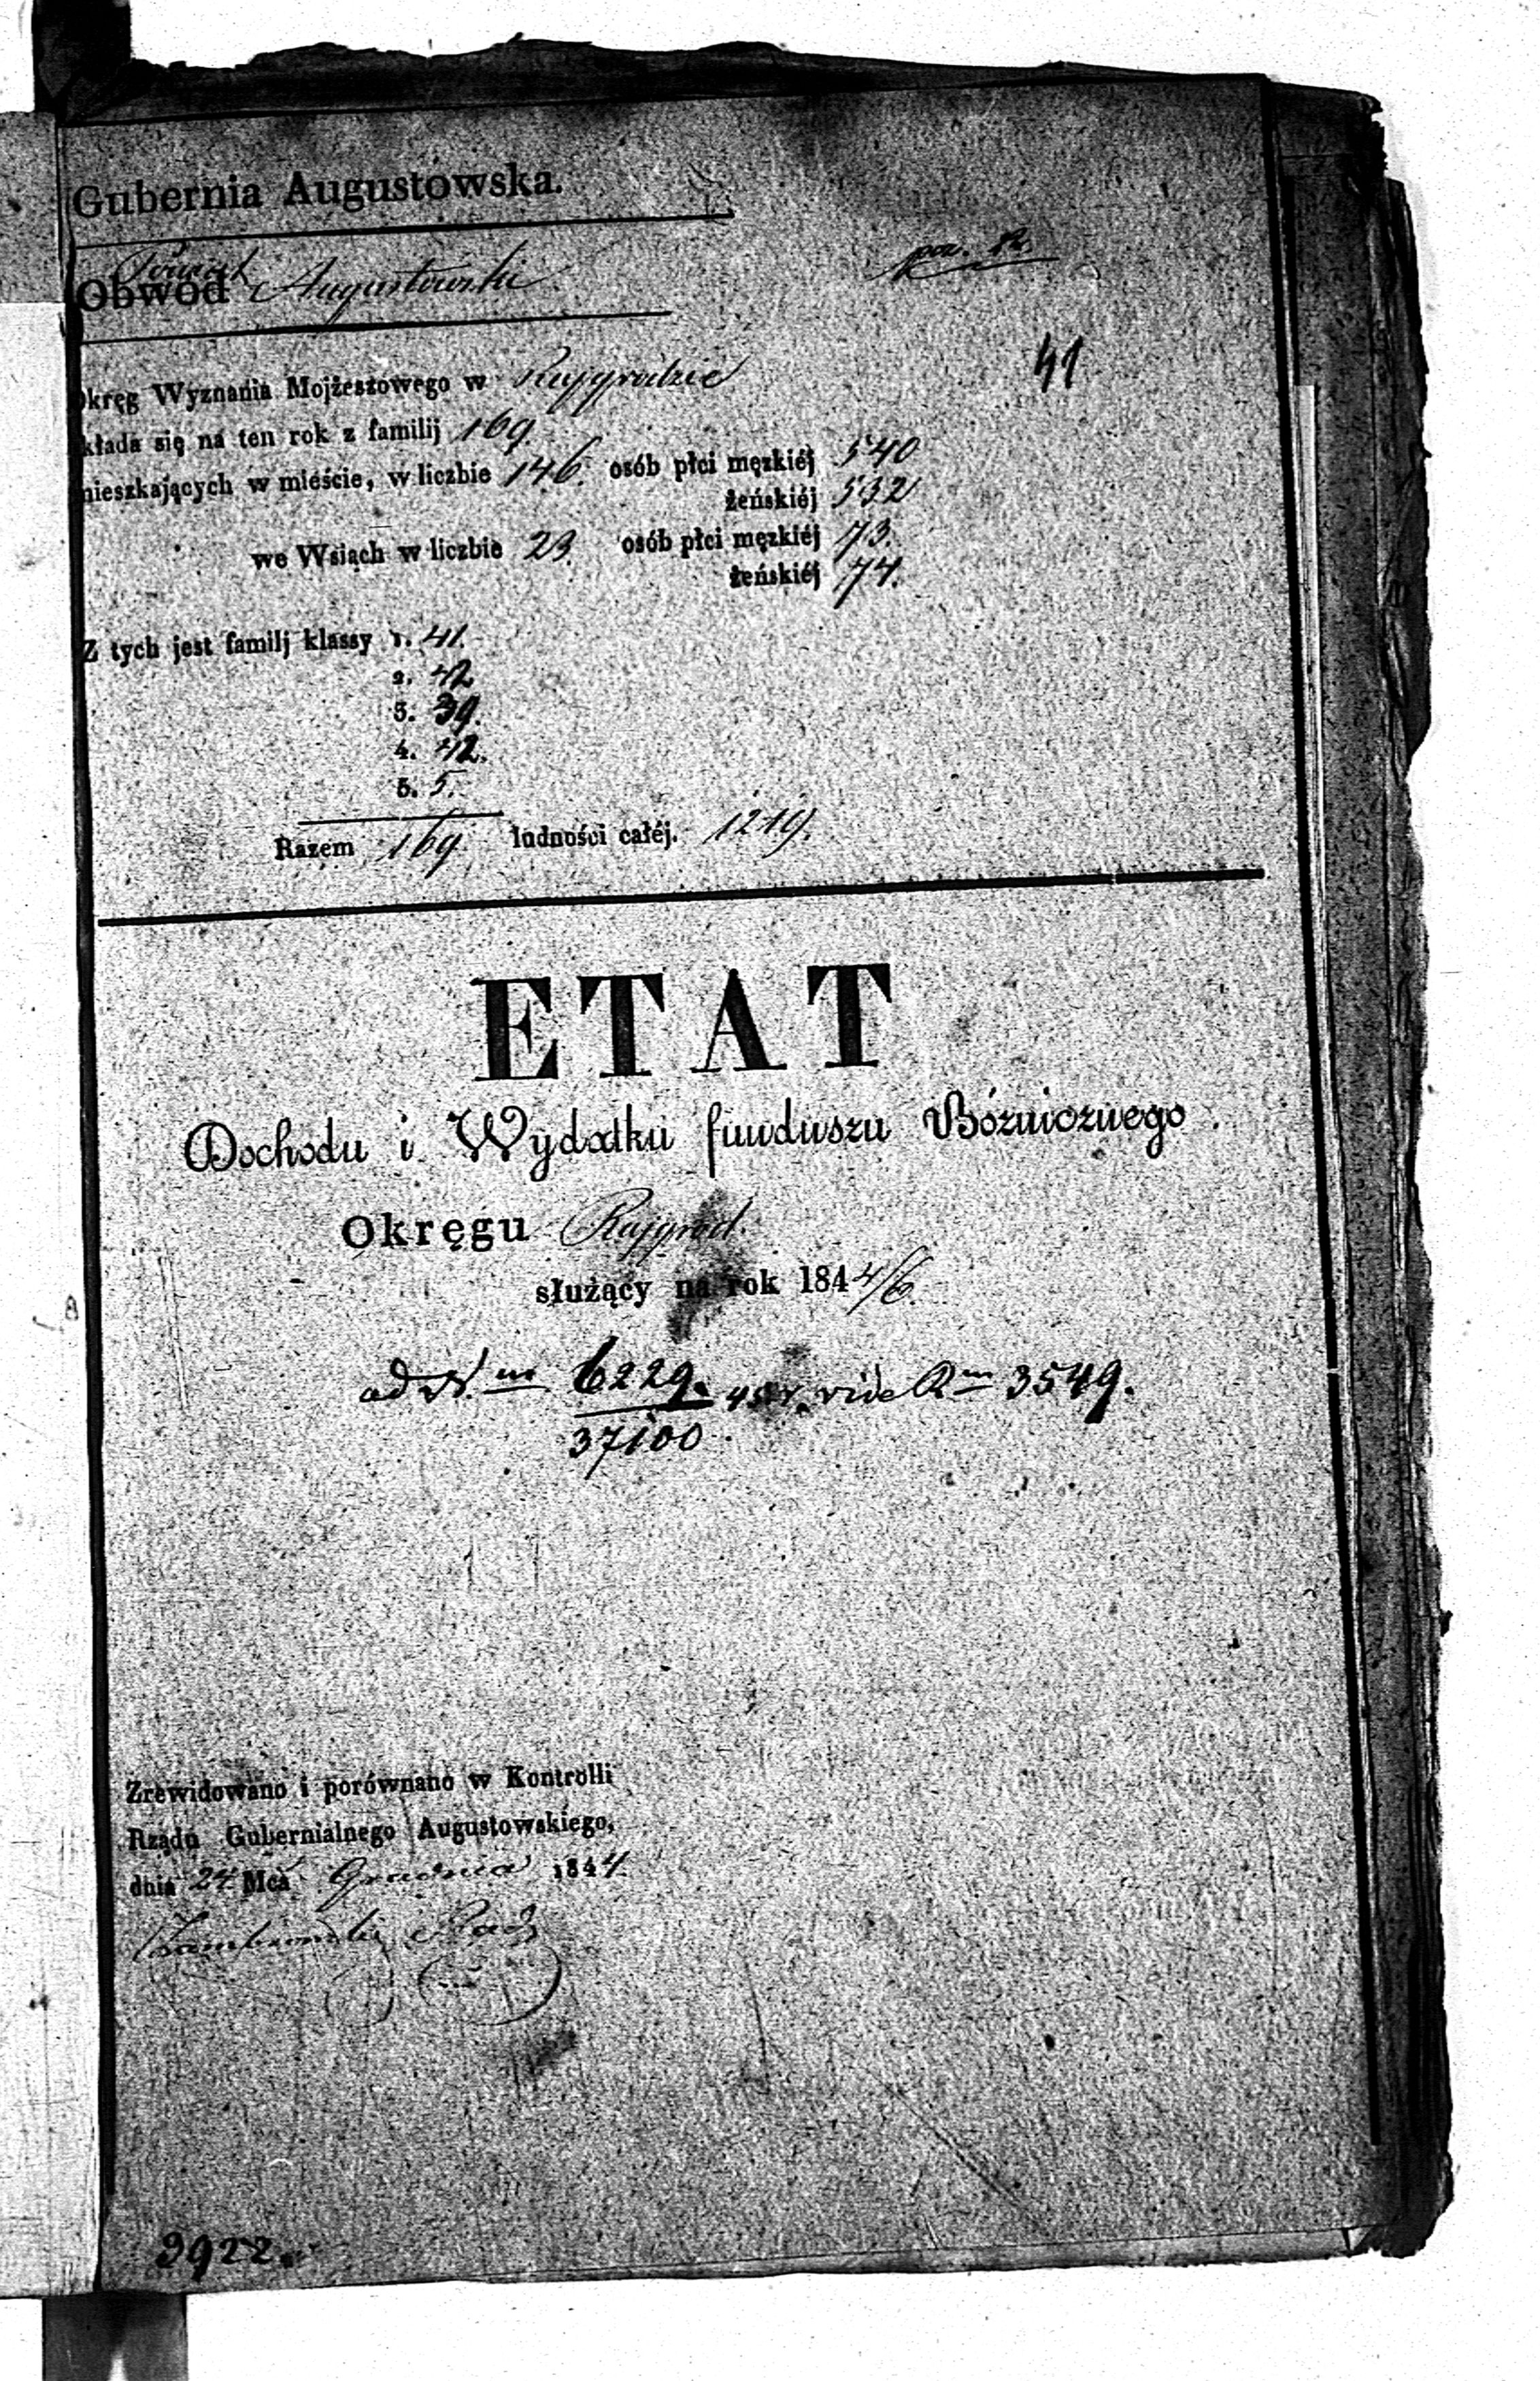 Gubernia Augustowska.
Powiat
Obwód Augustowski
poz. 82.
41
Okręg Wyznania Mojżeszowego w Rajgrodzie
składa się na ten rok z familij 169
mieszkających w mieście, w liczbie 146. osób płci męzkiéj 540
żeńskiéj 532
we Wsiąch w liczbie 23. osób płci męzkiéj 73.
żeńskiéj 74.
Z tych jest familj klassy 1. 41.
2. 42
3. 39.
4. 42.
5. 5.
Razem 169. ludności całéj. 1219.
ETAT
Dochodu i Wydatku funduszu Bóżnicznego.
Okręgu Rajgród.
służący na rok 1844/6.
ad N. m 6229. 45r. vide R m 3549.
37100.
Zrewidowano i porównano w Kontrolli
Rządu Gubernialnego Augustowskiego,
dnia 24 Mca Grudnia 1844.
3922.